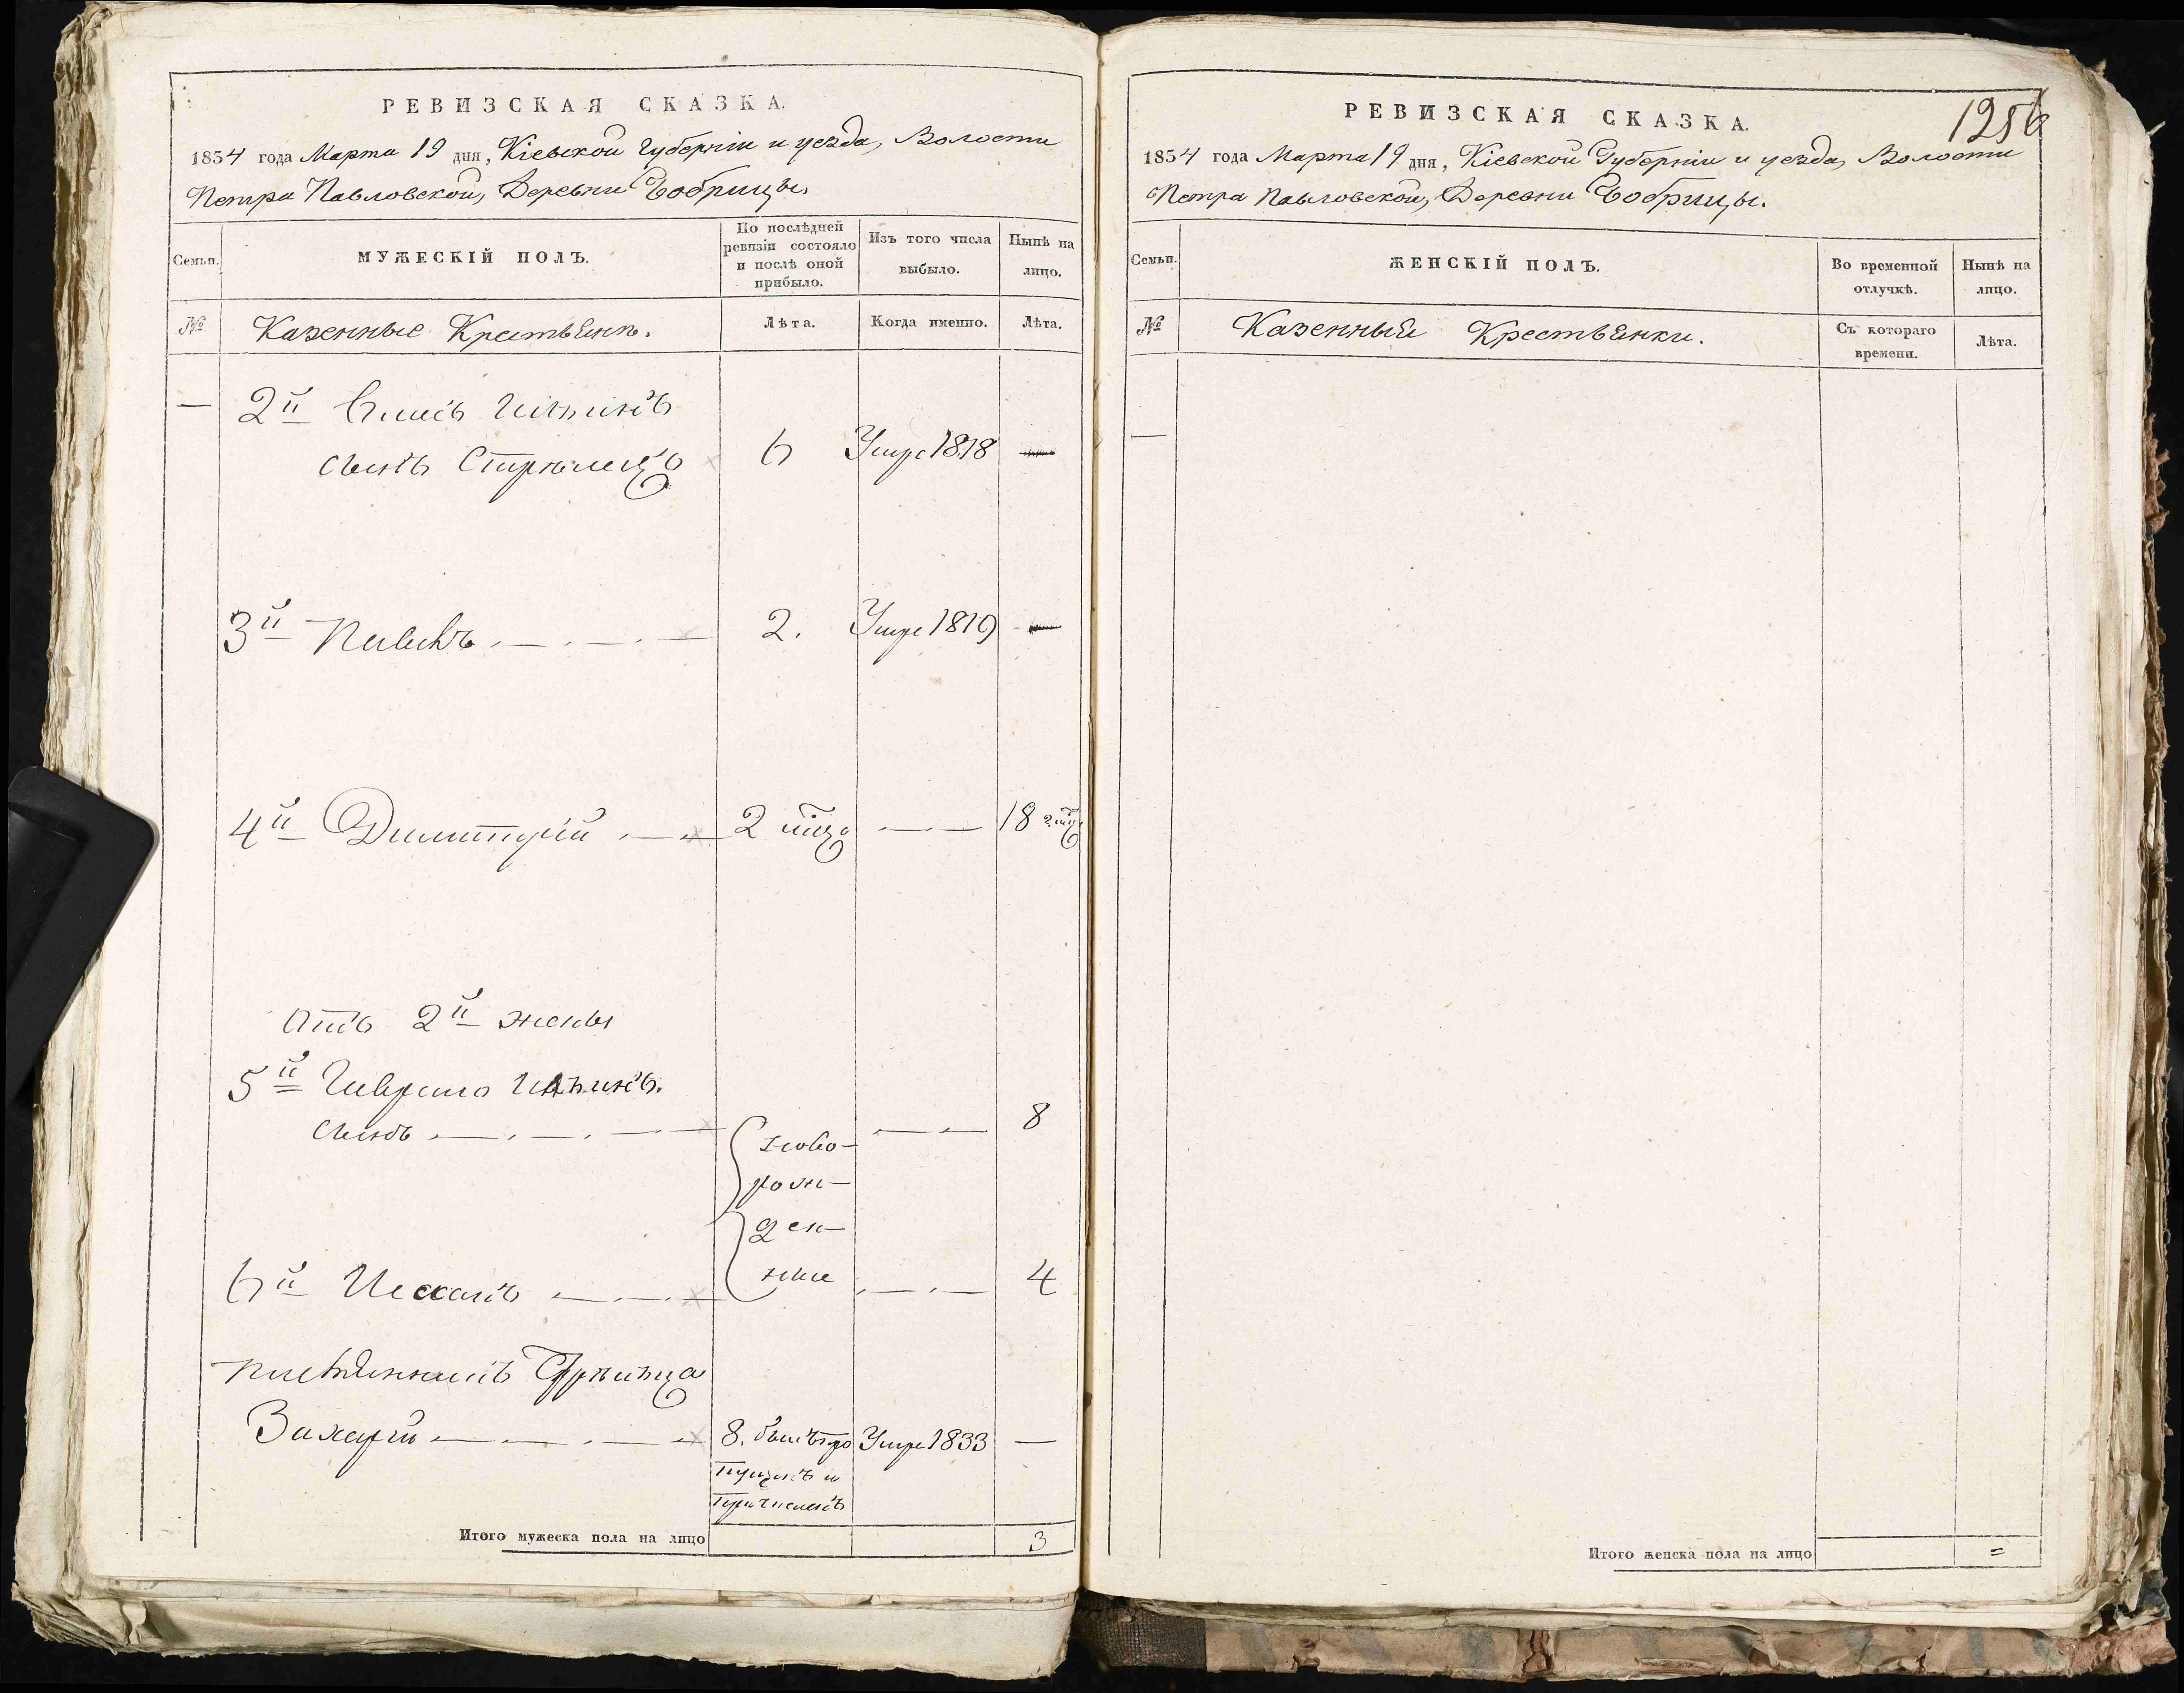 РЕВИЗСКАЯ СКАЗКА.
1854 года Марта 19 дня, Кіевской Губерніи и уезда, Волости
Петра Павловской, Деревни Бобрицы.
Семьи.
МУЖЕСКІЙ ПОЛЪ.
По послѣдней ревизіи состояло и послѣ оной прибыло.
Изъ того числа выбыло.
Нынѣ на лицо.
№
Казенные Крестьяне.
Лѣта.
Когда именно.
Лѣта.
— 2й Ильинъ
сынъ Стрѣлецъ 6 Умре 1818 —
3й Павелъ 2. Умре 1819 —
4й Димитрій 2 18
Отъ 2й жены
5й Гаврило Ильинъ
сынъ 8
ново-
рож-
ден-
ные
6й 4
племянникъ
Захарій 8. Умре 1833 —
пущенъ и
причисленъ
Итого мужеска пола на лицо 3
1256
РЕВИЗСКАЯ СКАЗКА.
1854 года Марта 19 дня, Кіевской Губерніи и уезда, Волости
Петра Павловской, Деревни Бобрицы.
Семьи.
ЖЕНСКІЙ ПОЛЪ.
Во временной отлучкѣ.
Нынѣ на лицо.
№
Казенныя Крестьянки.
Съ котораго времени.
Лѣта.
—
Итого женска пола на лицо =